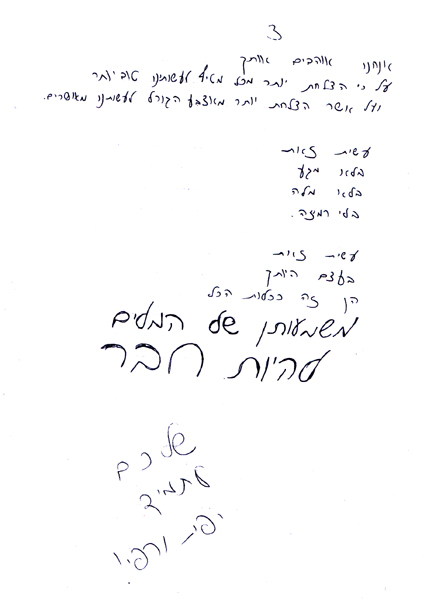 3
אנחנו אוהבים אותך
על כי הצלחת יותר מכל מאיץ לעשותנו טוב יותר
ועל אשר הצלחת יותר מאצבע הגורל לעשותנו מאושרים.
עשית זאת
בלא מגע
בלא מלה
בלי רמזה.
עשית זאת
בעצם היותך
הן זה ככלות הכל
משמעותן של המלים
להיות חבר
שלכם
לתמיד
יפי ורפי